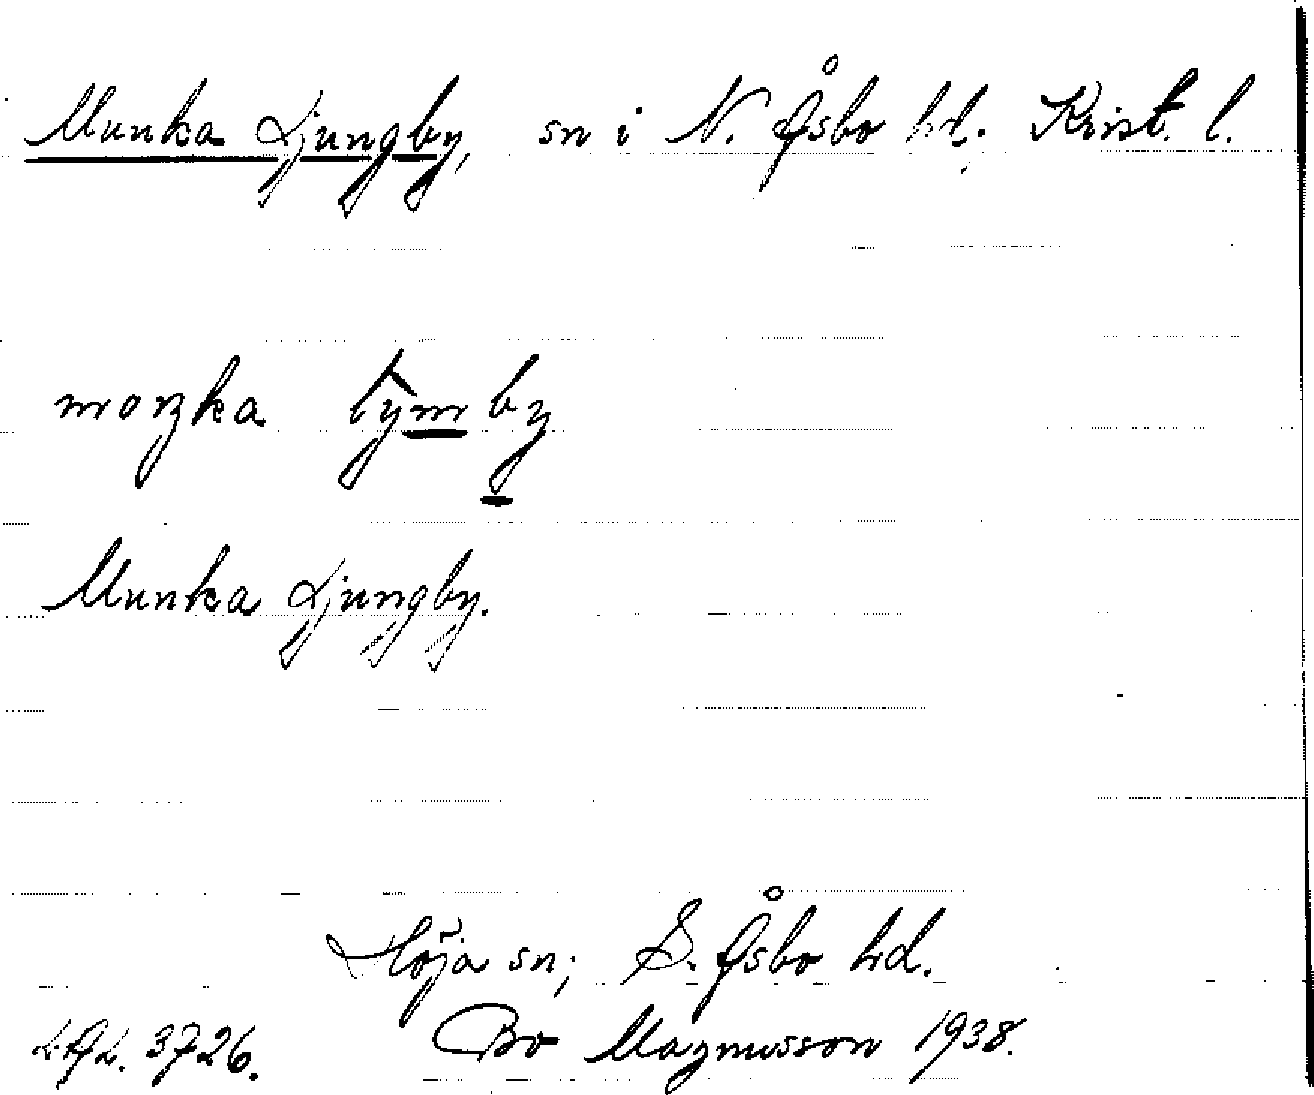 Munka Ljungby, sn i N. Åsbo hd. Krist. l.
moŋka
Munka Ljungby.
Höja sn; S. Åsbo hd.
3726. Bo Magnusson 1938.